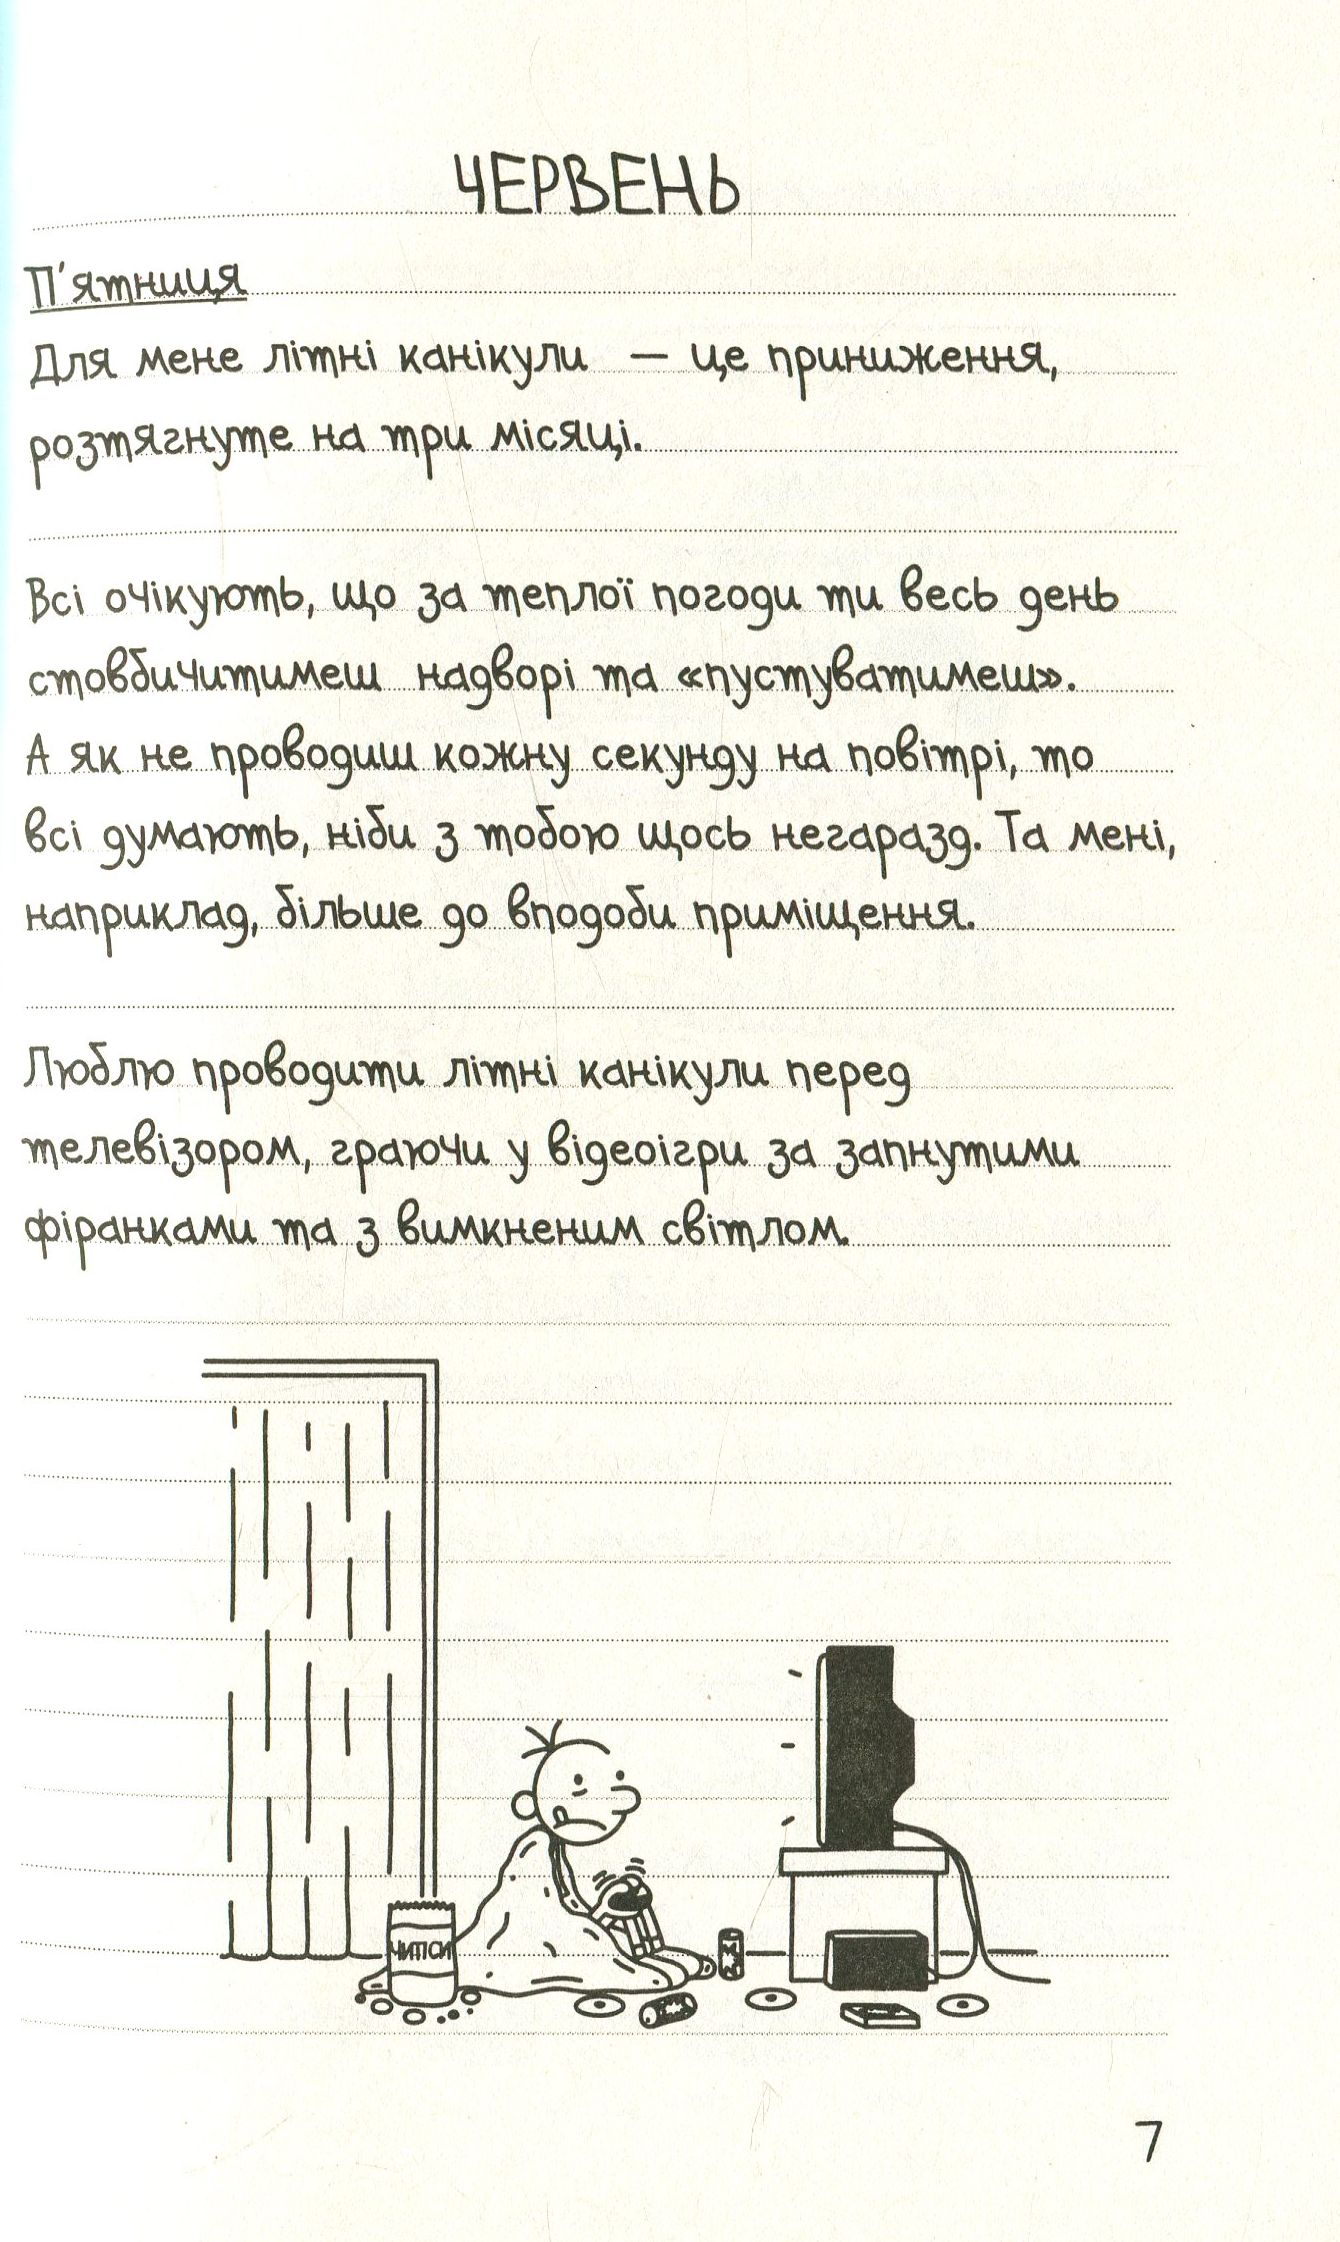 ЧЕРВЕНЬ
П'ятниця
Для мене літні канікули — це приниження,
розтягнуте на три місяці.
Всі очікують, що за теплої погоди ти весь день
стовбичитимеш надворі та «пустуватимеш».
А як не проводиш кожну секунду на повітрі, то
всі думають, ніби з тобою щось негаразд. Та мені,
наприклад, більше до вподоби приміщення.
Люблю проводити літні канікули перед
телевізором, граючи у відеоігри за запнутими
фіранками та з вимкненим світлом.
ЧИПСИ
7